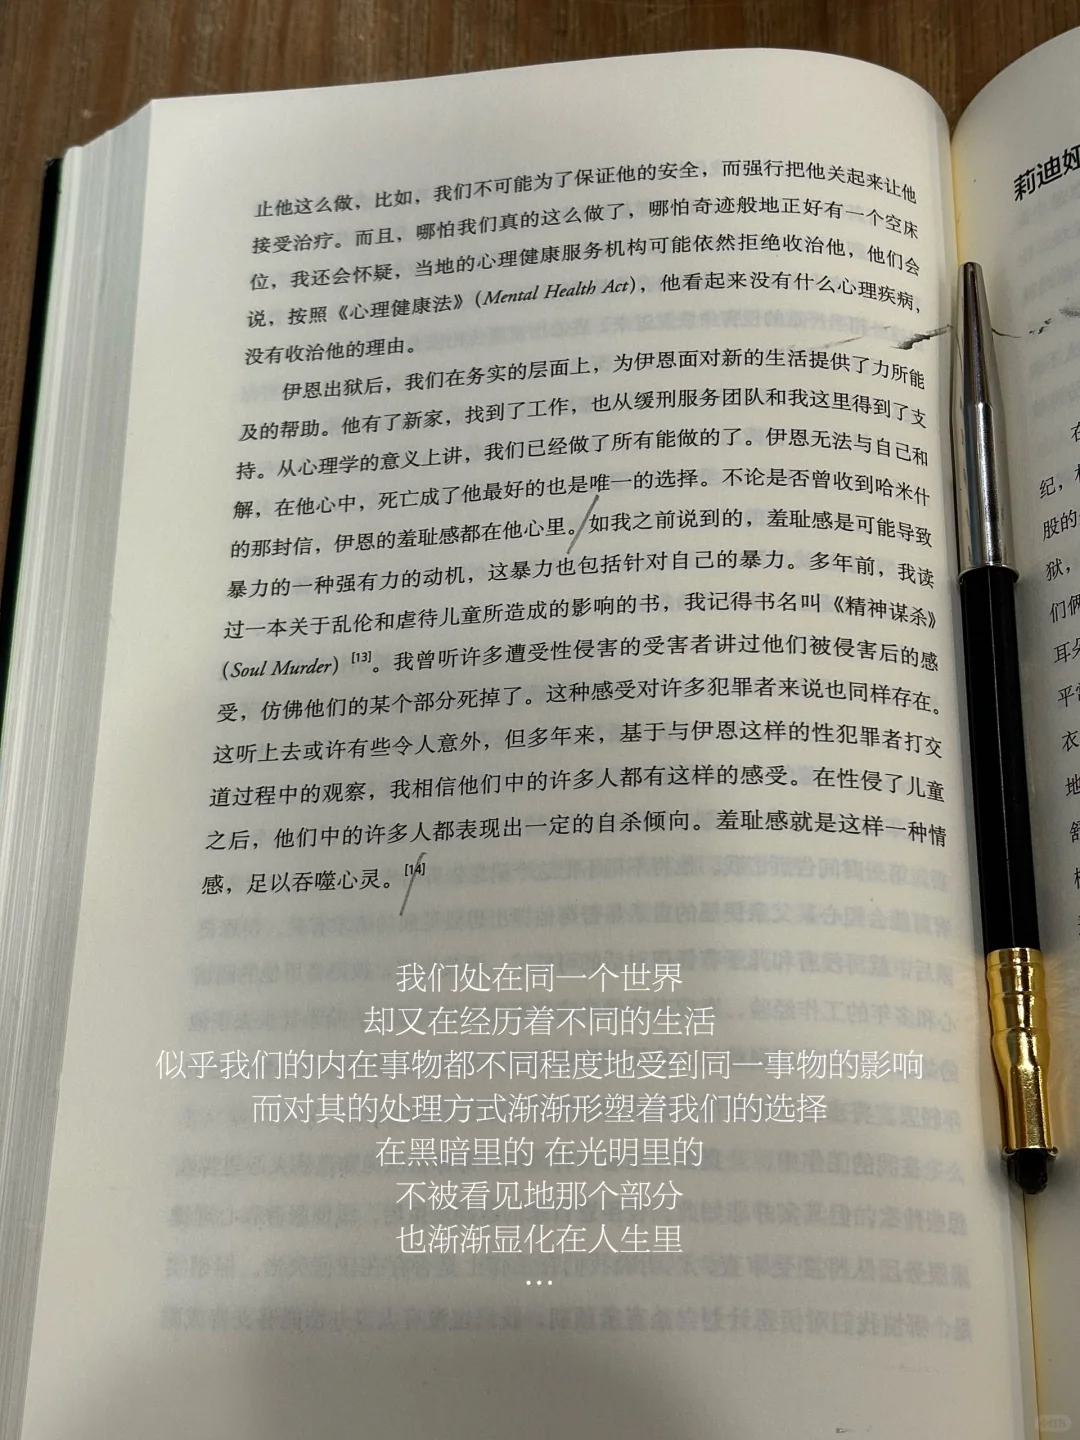 止他这么做，比如，我们不可能为了保证他的安全，而强行把他关起来让他
接受治疗。而且，哪怕我们真的这么做了，哪怕奇迹般地正好有一个空床
位，我还会怀疑，当地的心理健康服务机构可能依然拒绝收治他，他们会
说，按照《心理健康法》（Mental Health Act），他看起来没有什么心理疾病，
没有收治他的理由。
伊恩出狱后，我们在务实的层面上，为伊恩面对新的生活提供了力所能
及的帮助。他有了新家，找到了工作，也从缓刑服务团队和我这里得到了支
持。从心理学的意义上讲，我们已经做了所有能做的了。伊恩无法与自己和
解，在他心中，死亡成了他最好的也是唯一的选择。不论是否曾收到哈米什
的那封信，伊恩的羞耻感都在他心里。如我之前说到的，羞耻感是可能导致
暴力的一种强有力的动机，这暴力也包括针对自己的暴力。多年前，我读
过一本关于乱伦和虐待儿童所造成的影响的书，我记得书名叫《精神谋杀》
（Soul Murder）[13]。我曾听许多遭受性侵害的受害者讲过他们被侵害后的感
受，仿佛他们的某个部分死掉了。这种感受对许多犯罪者来说也同样存在。
这听上去或许有些令人意外，但多年来，基于与伊恩这样的性犯罪者打交
道过程中的观察，我相信他们中的许多人都有这样的感受。在性侵了儿童
之后，他们中的许多人都表现出一定的自杀倾向。羞耻感就是这样一种情
感，足以吞噬心灵。[14]
我们处在同一个世界
却又在经历着不同的生活
似乎我们的内在事物都不同程度地受到同一事物的影响
而对其的处理方式渐渐形塑着我们的选择
在黑暗里的 在光明里的
不被看见地那个部分
也渐渐显化在人生里
...
莉迪娅
纪，
股的
狱，
们俩
耳朵
平常
衣
地